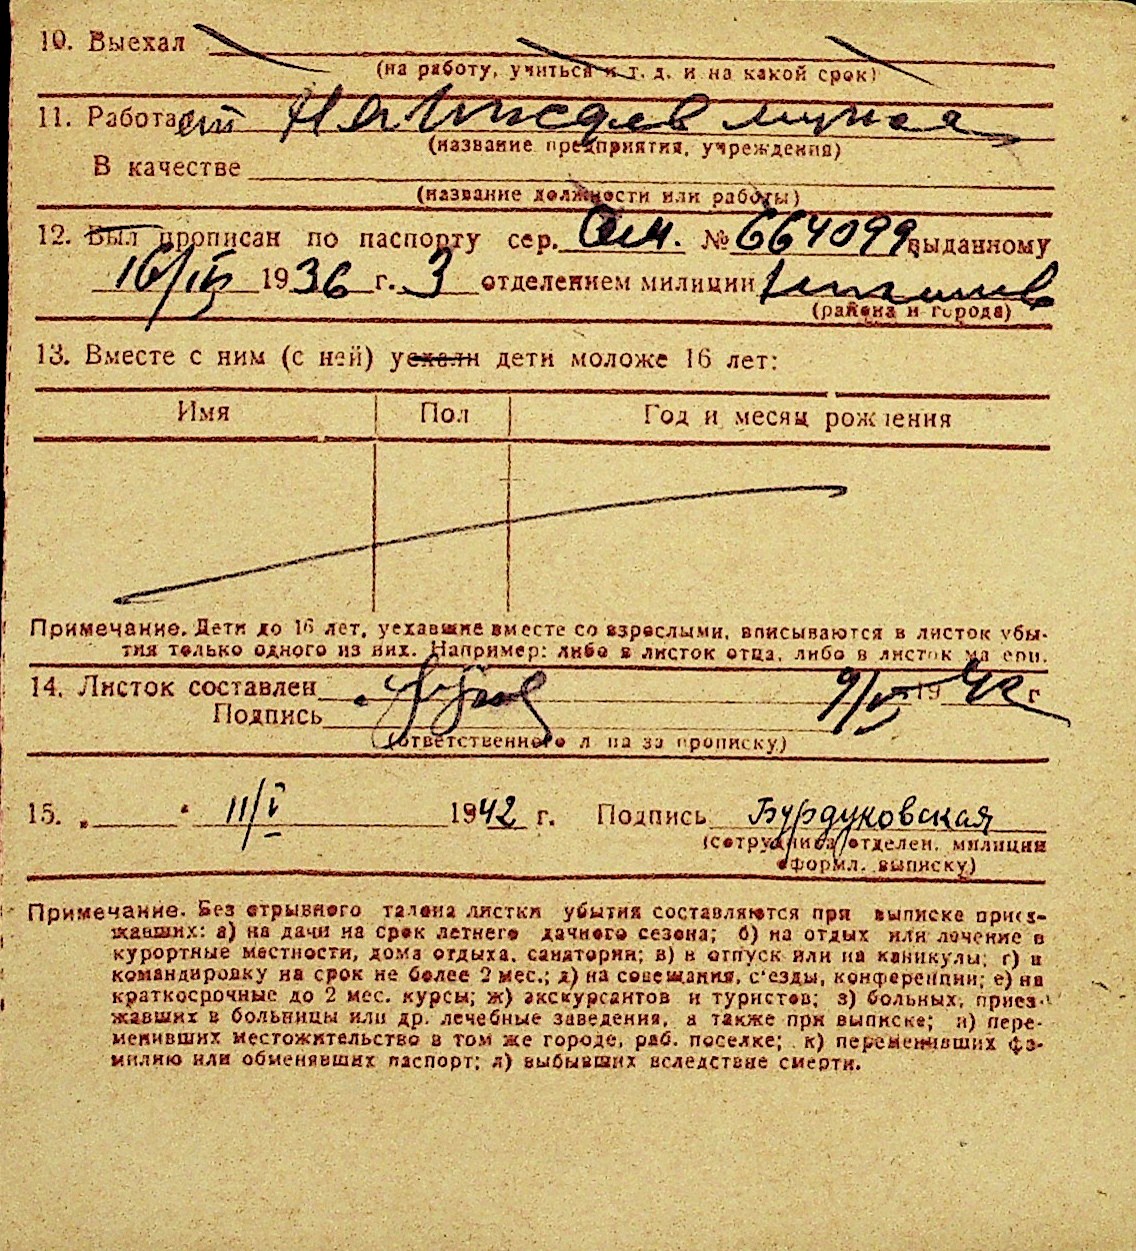 10. Выехал
(на работу, учиться и т. д. и на какой срок)
11. Работает На иждев мужа
(название предприятия, учреждения)
В качестве
(название должности или работы)
12. Был прописан по паспорту сер. № 664099 выданному
16/III 1936 г. 3 отделением милиции
(района и города)
13. Вместе с ним (с ней) уехали дети моложе 16 лет:
Имя Пол Год и месяц рождения
Примечание. Дети до 16 лет, уехавшие вместе со взрослыми, вписываются в листок убы-
тия только одного из них. Например: либо в листок отца, либо в листок матери.
14. Листок составлен 9/V 1942 г
Подпись
(ответственного лица за прописку)
15. „ " 11/V 1942 г. Подпись Бурдуковская
(сотрудника отделен. милиции
оформл. выписку)
Примечание. Без отрывного талона листки убытия составляются при выписке приез-
жавших: а) на дачи на срок летнего дачного сезона; б) на отдых или лечение в
курортные местности, дома отдыха, санатории; в) в отпуск или на каникулы; г) в
командировку на срок не более 2 мес.; д) на совещания, с'езды, конференции; е) на
краткосрочные до 2 мес. курсы; ж) экскурсантов и туристов; з) больных, приез-
жавших в больницы или др. лечебные заведения, а также при выписке; и) пере-
менивших местожительство в том же городе, раб. поселке; к) переменивших фа-
милию или обменявших паспорт; л) выбывших вследствие смерти.